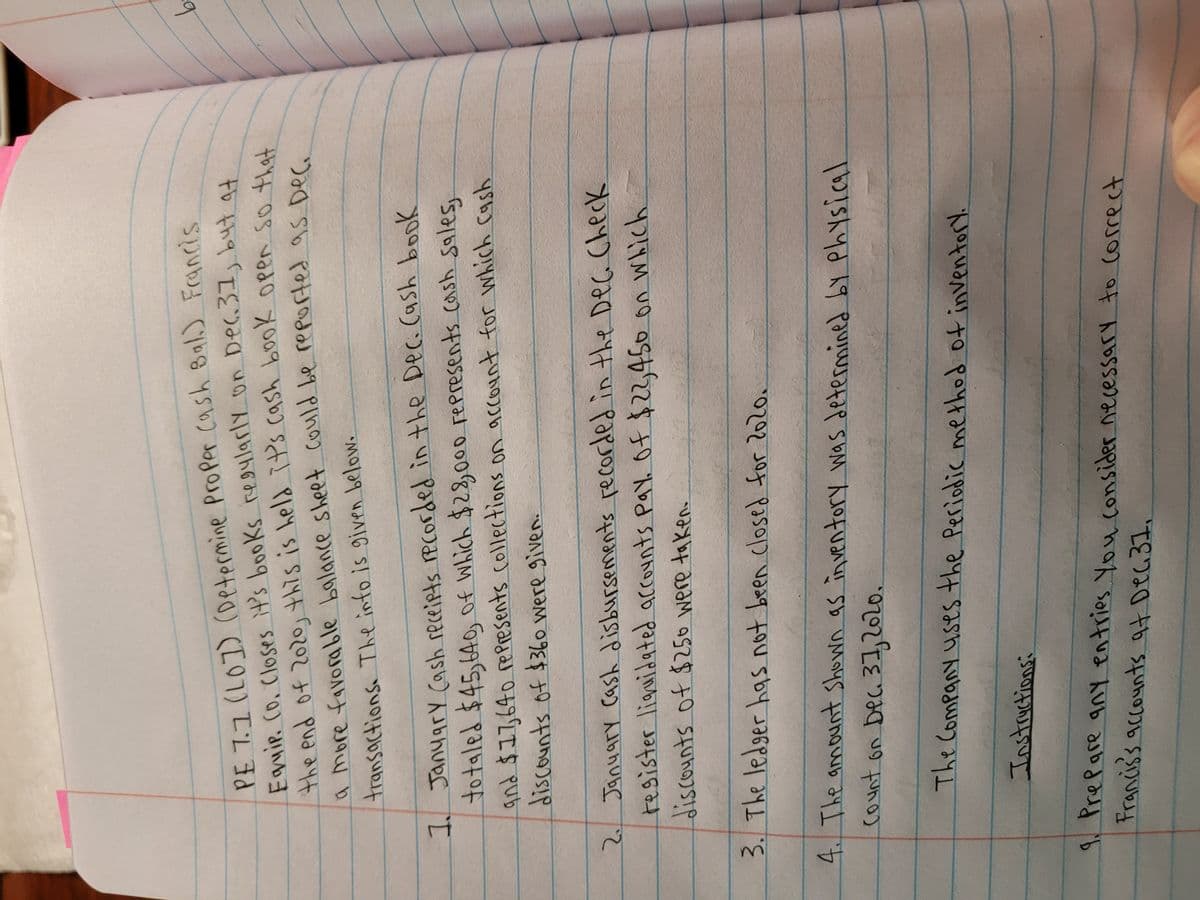 PE 7.1 (LO1) (Determine Proper Cash Bal.) Francis
Equip. Co. Closes it's books regularly on Dec.31, but at
the end of 2020, this is held it's cash book open so that
a more favorable balance sheet could be reported as Dec.
transactions. The info is given below.
1. January Cash receipts recorded in the Dec. Cash book
totaled $45,640, of which $28,000 represents cash sales,
and $17,640 represents collections on account for which cash
discounts of $360 were given.
2. January cash disbursements recorded in the Dec. Check
register liquidated accounts pay. of $22,450 on which
discounts of $250 were taken.
3. The ledger has not been closed for 2020.
4. The amount shown as inventory was determined by Physical
count on Dec. 31, 2020.
The Company uses the Periodic method of inventory.
Instructions:
a. Prepare any entries you consider necessary to correct
Francis's accounts at Dec.31.
b